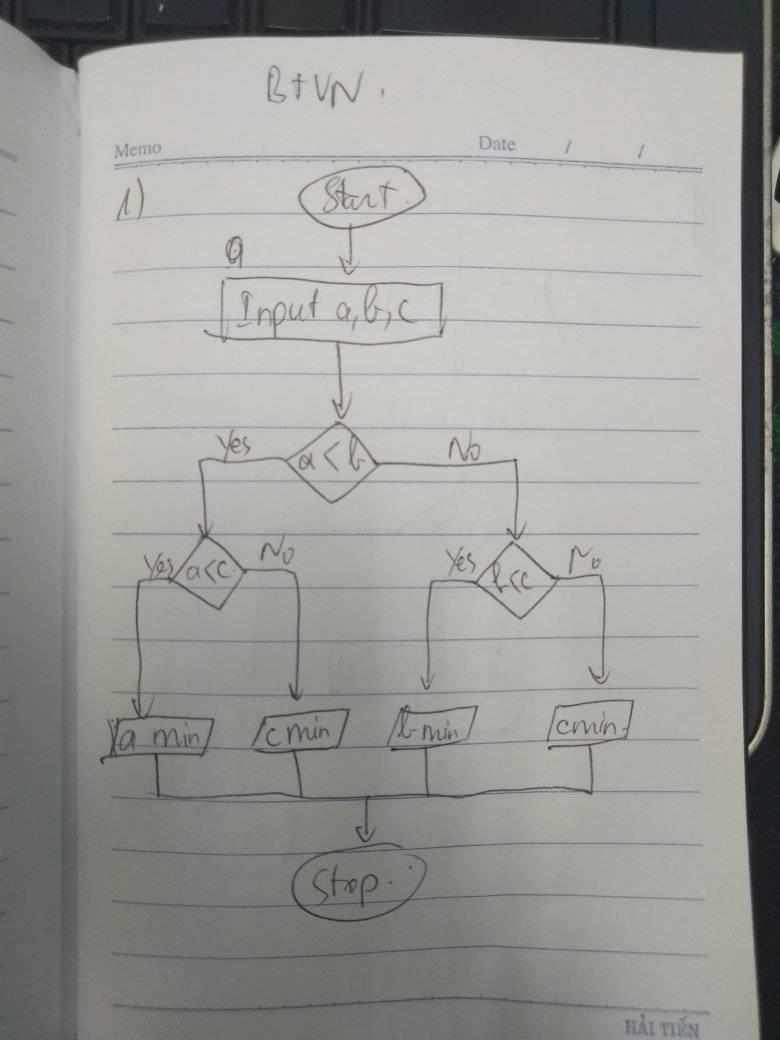 BTVN.
Memo Date / /
1) Start.
Input a,b,c
Yes a < b No
Yes a<c No Yes b<c No
a min c min b min c min.
Stop.
HẢI TIẾN